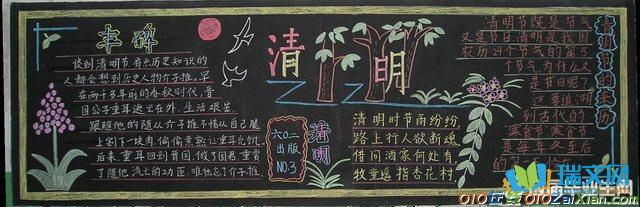 丰碑
谈到清明节有点历史知识的
人都会想到历史人物介子推,早
在两千多年前的春秋时代,晋
国公子重耳逃亡在外,生活艰苦
跟随他的随从介子推不惜从自己腿
上割下一块肉,偷偷煮熟让重耳充饥
后来,重耳回到晋国,做了国君,重赏
了随他流亡的功臣,唯他忘了介子推
清明
六〇二
出版
NO.3
清明
清明时节雨纷纷,
路上行人欲断魂,
借问酒家何处有
牧童遥指杏花村
清明节的来历
清明节既是节气
又是节日,清明是我国
农历24个节气的第5
个节气为什么又
是节日呢?
这要追溯
到古代的
寒食节,寒食节
是每年冬至后
瑞文网
010在线
010zaixian.com